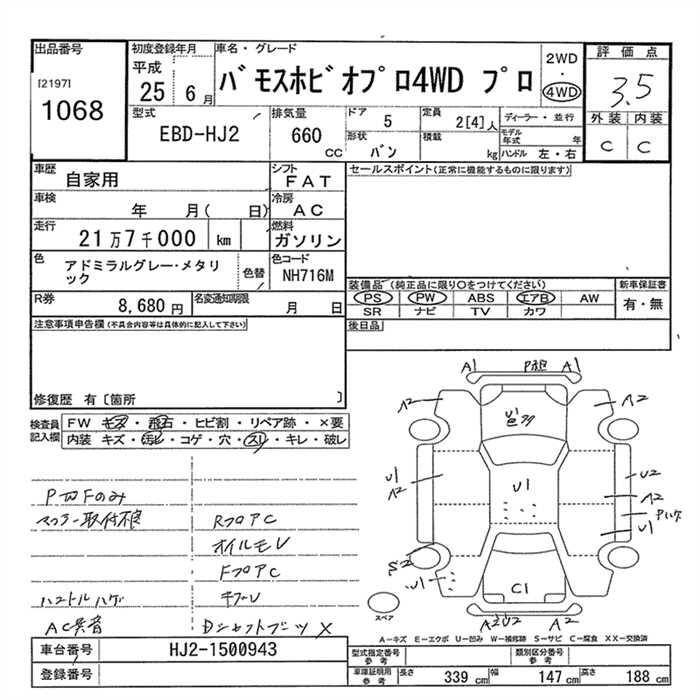 出品番号
[2197]
1068
初度登録年月
平成
25 6 月
車名・グレード
バモスホビオプロ4WD プロ
2WD
・
4WD
評価点
3.5
外装 内装
C C
型式
EBD-HJ2
排気量
660
CC
ドア
5
形状
バン
定員
2[4] 人
積載
kg
ディーラー・並行
モデル年式 年
ハンドル 左・右
車歴
自家用
車検
年 月( 日)
走行
21万7千000 km
色
アドミラルグレー・メタリック
色替
シフト
FAT
冷房
AC
燃料
ガソリン
色コード
NH716M
R券
8,680 円
名変通知期限
月 日
セールスポイント(正常に機能するものに限ります)
装備品(純正品に限り〇をつけてください)
PS PW ABS エアB AW
SR ナビ TV カワ
新車保証書
有・無
後日品
注意事項申告欄(不具合内容等は具体的に記入して下さい)
修復歴 有〔箇所 〕
検査員記入欄
FW キズ・飛石・ヒビ割・リペア跡・×要
内装 キズ・汚レ・コゲ・穴・スレ・キレ・破レ
マフラー取付不良
RフロアC
オイルモレ
FフロアC
ハンドルハゲ
AC異音
Dシャフトブーツ X
A1 A1
A2 A2
U1
U1
U1
A2
U2
A2
Pハゲ
U1
S2
U1
C1
A2U2 A2
スペア
A-キズ E-エクボ U-凹み W-補修跡 S-サビ C-腐食 XX-交換済
車台番号
HJ2-1500943
登録番号
型式指定番号
参考
類別区分番号
参考
車庫証明用
参考
長さ 339 cm 幅 147 cm 高さ 188 cm